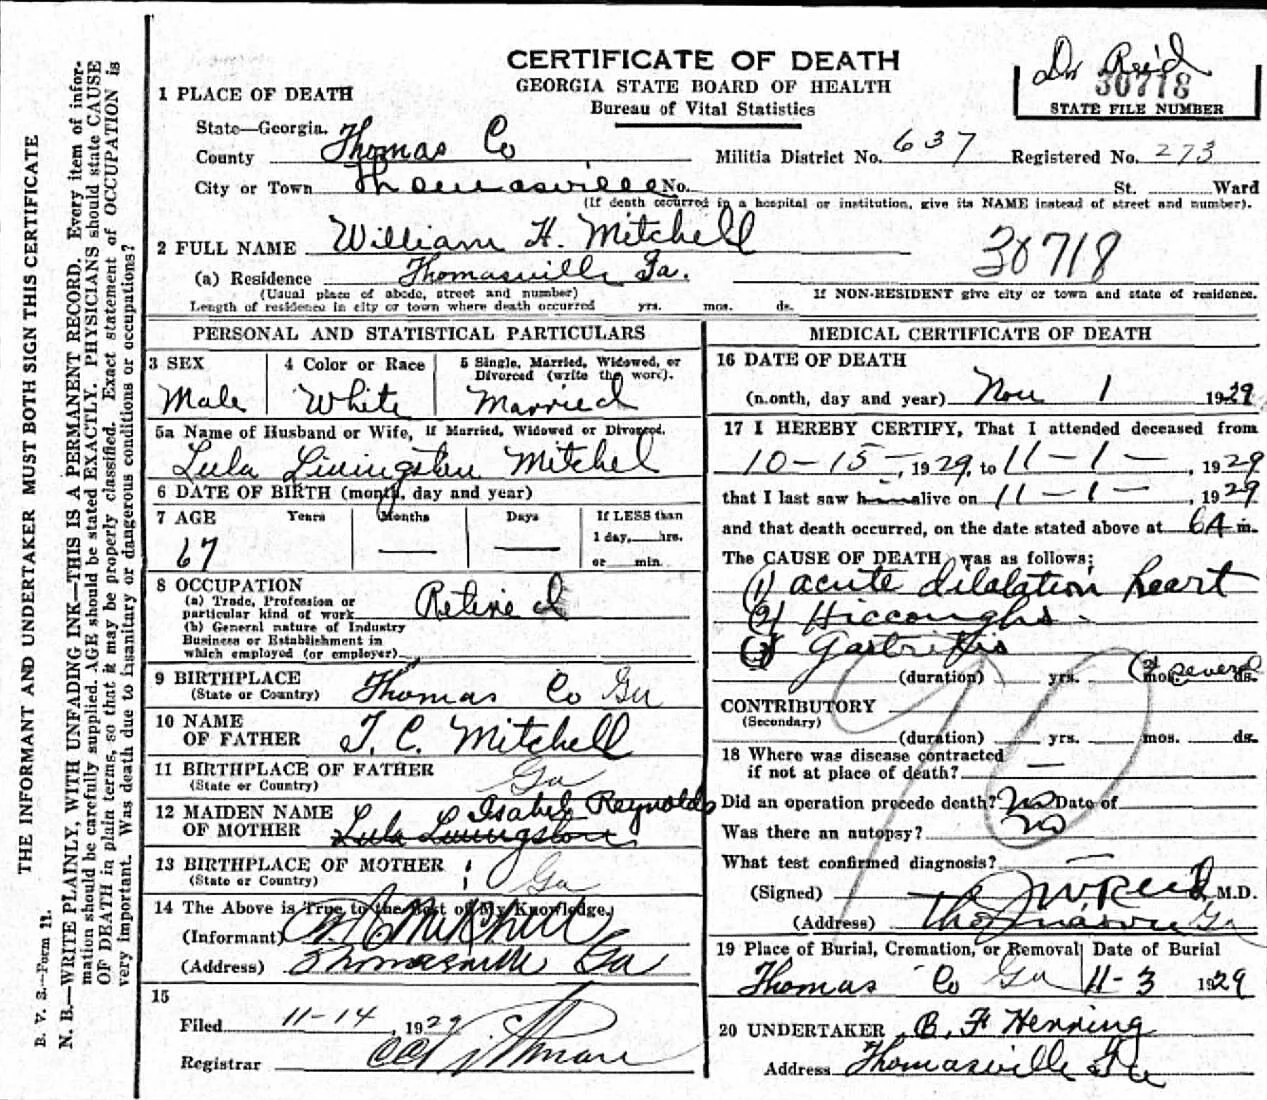 CERTIFICATE OF DEATH
GEORGIA STATE BOARD OF HEALTH
Bureau of Vital Statistics
Dr Reid
30718
STATE FILE NUMBER
1 PLACE OF DEATH
State—Georgia.
County Thomas Co
Militia District No. 637 Registered No. 273
City or Town Thomasville No. St. Ward
(If death occurred in a hospital or institution, give its NAME instead of street and number).
2 FULL NAME William H. Mitchell
30718
(a) Residence Thomasville Ga.
(Usual place of abode, street and number)
If NON-RESIDENT give city or town and state of residence.
Length of residence in city or town where death occurred yrs. mos. ds.
PERSONAL AND STATISTICAL PARTICULARS
3 SEX
Male
4 Color or Race
White
5 Single, Married, Widowed, or
Divorced (write the word).
Married
5a Name of Husband or Wife, if Married, Widowed or Divorced.
Lula Livingston Mitchel
6 DATE OF BIRTH (month, day and year)
7 AGE Years Months Days If LESS than
1 day, hrs.
or min.
67 — —
8 OCCUPATION
(a) Trade, Profession or
particular kind of work
Retired
(b) General nature of Industry
Business or Establishment in
which employed (or employer)
9 BIRTHPLACE
(State or Country)
Thomas Co Ga
10 NAME
OF FATHER T. C. Mitchell
11 BIRTHPLACE OF FATHER
(State or Country)
Ga
12 MAIDEN NAME
OF MOTHER
Isabel Raynolds
Lula Livingston
13 BIRTHPLACE OF MOTHER
(State or Country)
Ga
14 The Above is True to the Best of My Knowledge.
(Informant) Mitchell
(Address) Thomasville Ga
15
Filed 11-14, 1929
Registrar
MEDICAL CERTIFICATE OF DEATH
16 DATE OF DEATH
(month, day and year) Nov 1 1929
17 I HEREBY CERTIFY, That I attended deceased from
10-15-, 1929, to 11-1-, 1929
that I last saw him alive on 11-1-, 1929
and that death occurred, on the date stated above at 6A m.
The CAUSE OF DEATH was as follows:
(1) acute dilalation heart
(2) Hiccoughs
(3) Gastritis
(duration) yrs. mos. several ds.
CONTRIBUTORY
(Secondary)
(duration) yrs. mos. ds.
18 Where was disease contracted
if not at place of death? —
Did an operation precede death? no Date of
Was there an autopsy? no
What test confirmed diagnosis? —
(Signed) J W Reid M.D.
(Address) Thomasville Ga
19 Place of Burial, Cremation, or Removal Date of Burial
Thomas Co Ga 11-3 1929
20 UNDERTAKER B. F Henning
Address Thomasville Ga
THE INFORMANT AND UNDERTAKER MUST BOTH SIGN THIS CERTIFICATE
B. V. S.—Form 11.
N. B.—WRITE PLAINLY, WITH UNFADING INK—THIS IS A PERMANENT RECORD. Every item of infor-
mation should be carefully supplied. AGE should be stated EXACTLY. PHYSICIANS should state CAUSE
OF DEATH in plain terms, so that it may be properly classified. Exact statement of OCCUPATION is
very important. Was death due to insanitary or dangerous conditions or occupations?